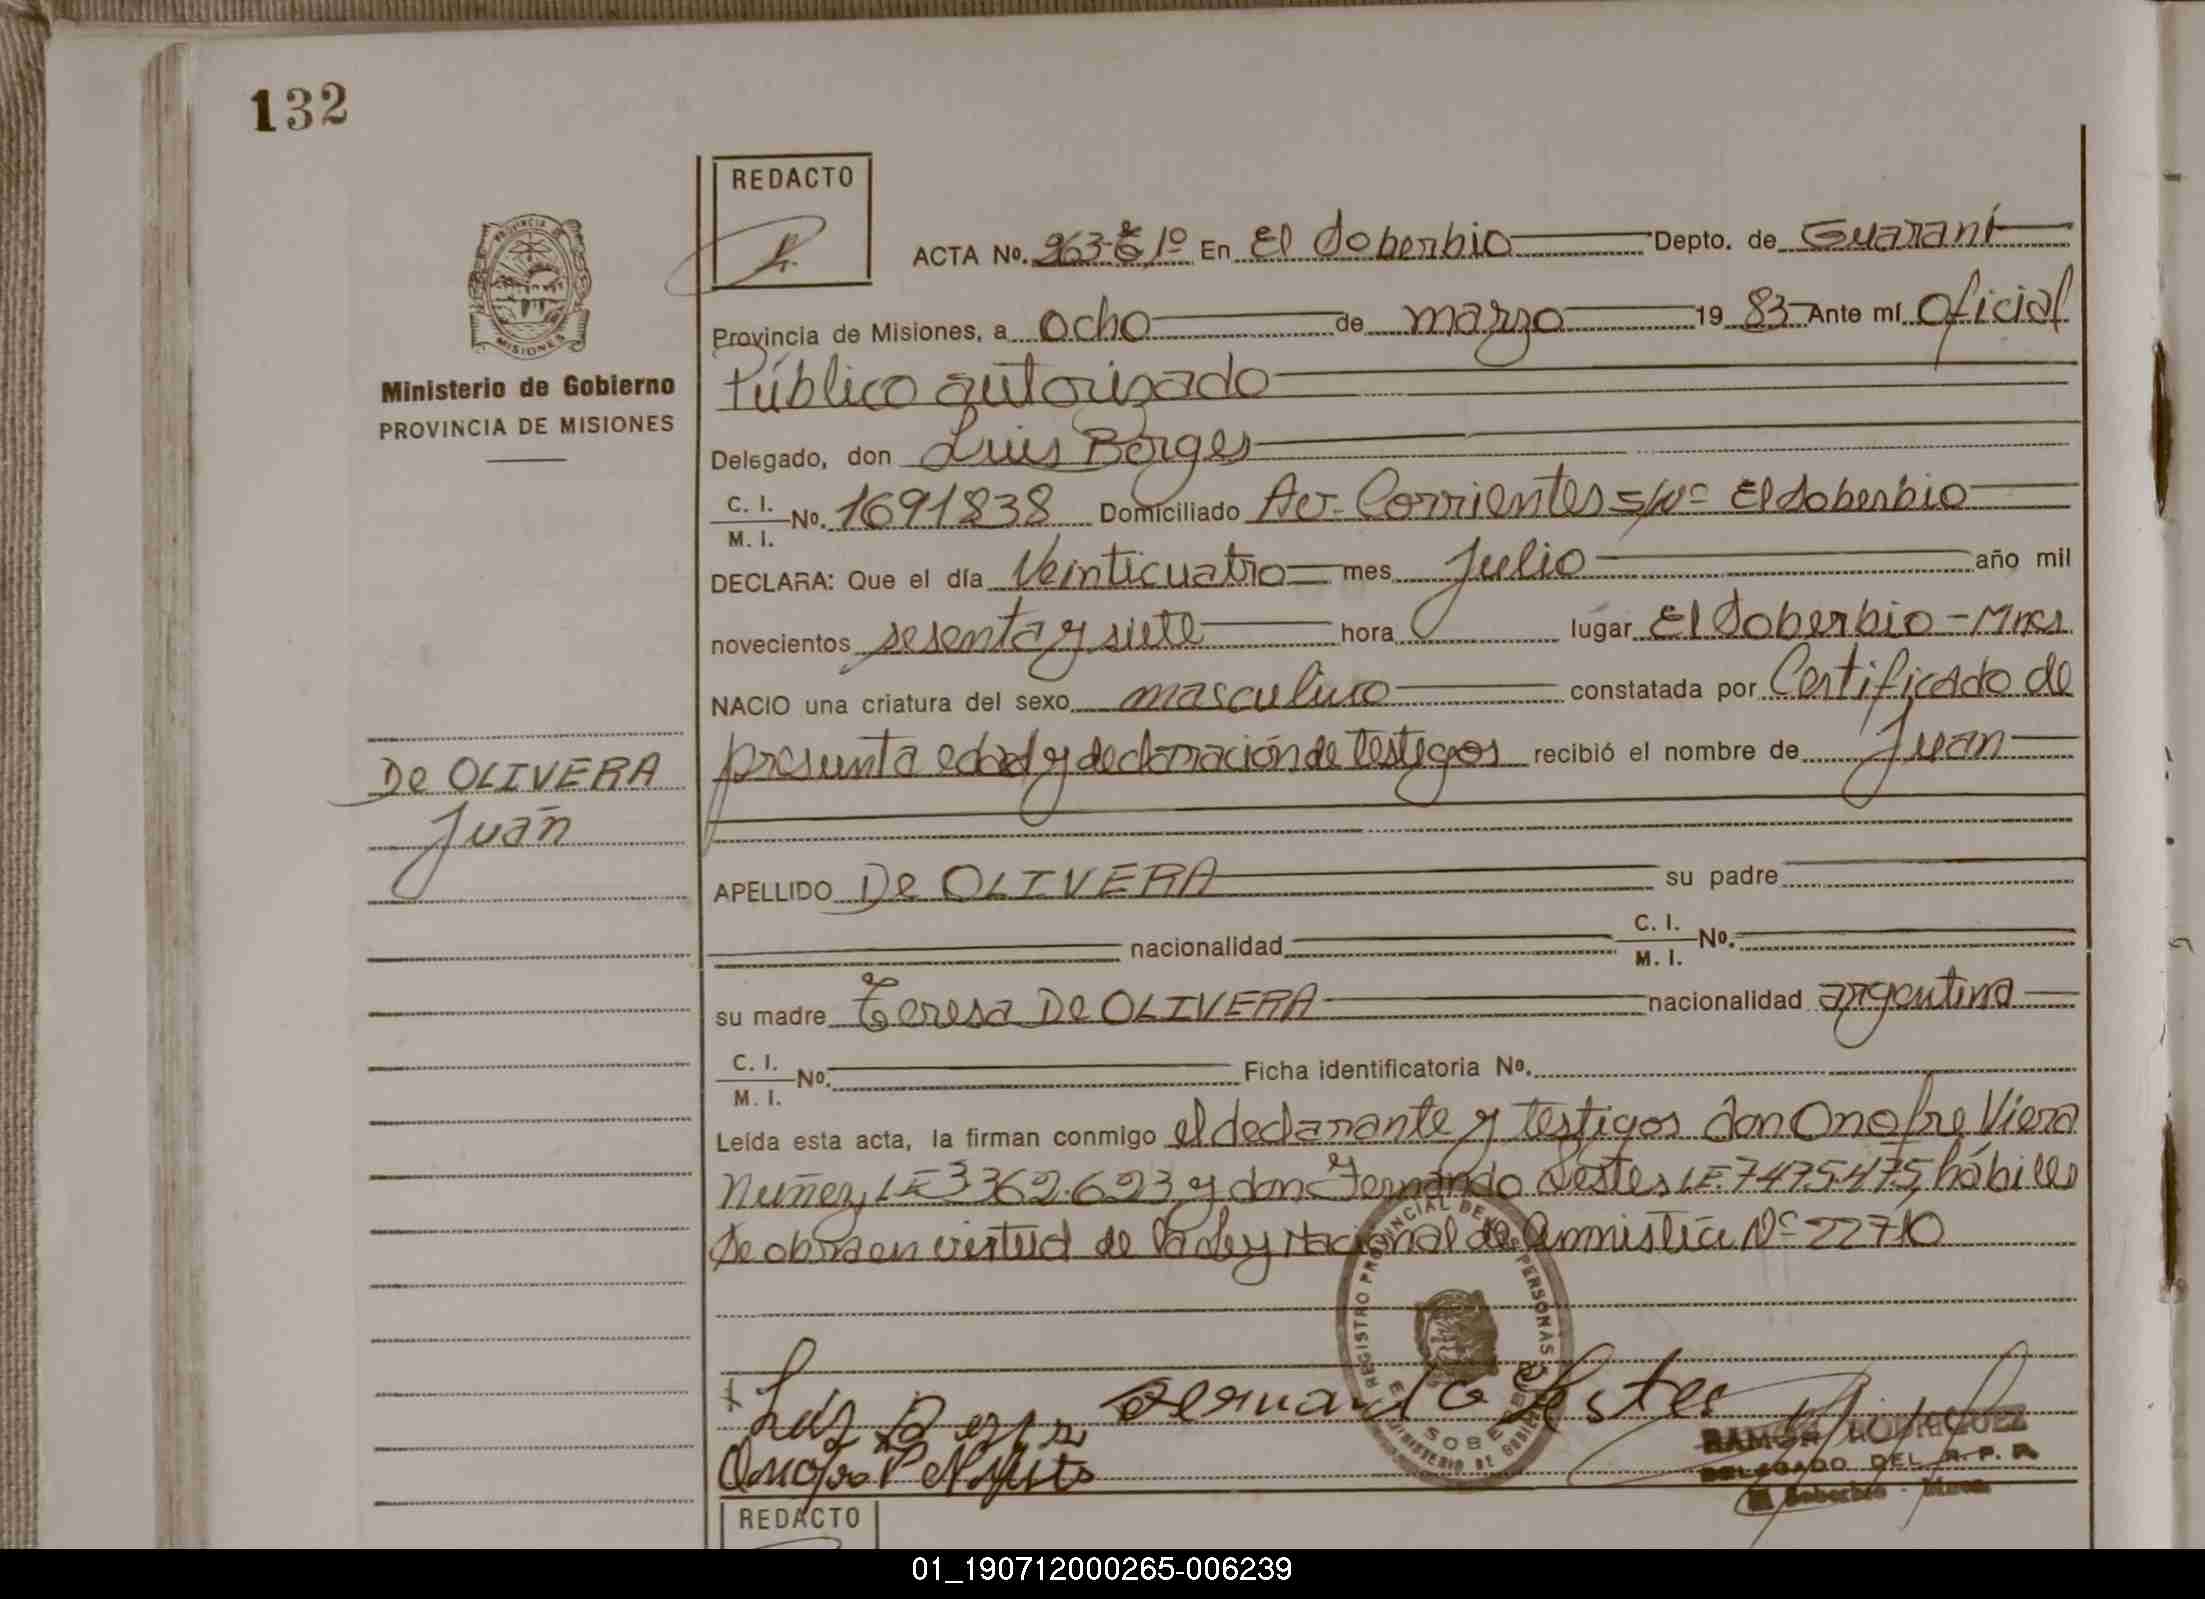 132
REDACTO
ACTA No. 963-T 1º En El Soberbio Depto. de Guaraní
Provincia de Misiones, a ocho de marzo 19 83 Ante mí Oficial
Público autorizado
Delegado, don Luis Borges
C. I.
M. I.
No. 1691838 Domiciliado Av. Corrientes s/Nº El Soberbio
DECLARA: Que el día Veinticuatro mes Julio año mil
novecientos sesenta y siete hora lugar El Soberbio - Mnes
NACIO una criatura del sexo masculino constatada por Certificado de
presunta edad y declaración de testigos recibió el nombre de Juan
APELLIDO De OLIVERA su padre
nacionalidad C. I.
M. I. No.
su madre Teresa De OLIVERA nacionalidad argentina
C. I.
M. I. No. Ficha identificatoria No.
Leída esta acta, la firman conmigo el declarante y testigos don Onofre Viera
Nuñez LE 3362.623 y don Fernando Sestes LE 7475.475, hábiles
Se obra en virtud de la Ley Nacional de Amnistía Nº 22710
PROVINCIA DE
MISIONES
Ministerio de Gobierno
PROVINCIA DE MISIONES
De OLIVERA
Juan
REGISTRO PROVINCIAL DE LAS PERSONAS
MINISTERIO DE GOBIERNO
Fernando Sestes
RAMON RODRIGUEZ
DELEGADO DEL R. P. P.
El Soberbio - Mnes
REDACTO
01_190712000265-006239